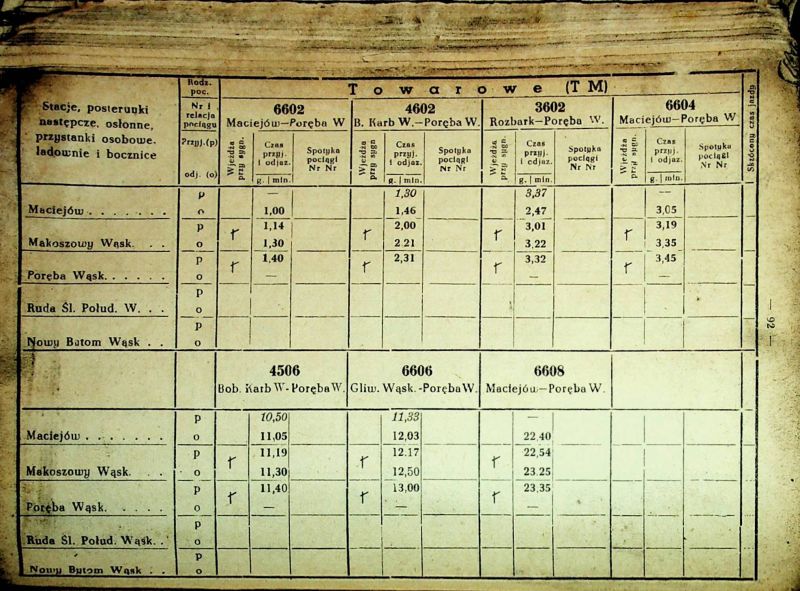 Stacje, posterunki
następcze, osłonne,
przystanki osobowe,
ładownie i bocznice
Rodz.
poc.
Nr i
relacja
pociągu
Przyj.(p)
odj. (o)
Towarowe (TM)
Skrócony czas jazdy
6602
Maciejów—Poręba W
4602
B. Karb W.—Poręba W.
3602
Rozbark—Poręba W.
6604
Maciejów—Poręba W
Wjeżdża
przy sygn.
Czas
przyj.
i odjaz.
g. | min.
Spotyka
pociągi
Nr Nr
Wjeżdża
przy sygn.
Czas
przyj.
i odjaz.
g. | min.
Spotyka
pociągi
Nr Nr
Wjeżdża
przy sygn.
Czas
przyj.
i odjaz.
g. | min.
Spotyka
pociągi
Nr Nr
Wjeżdża
przy sygn.
Czas
przyj.
i odjaz.
g. | min.
Spotyka
pociągi
Nr Nr
p — 1,30 3,37 —
Maciejów . . . . . . . o 1,00 1,46 2,47 3,05
p 1,14 2,00 3,01 3,19
Makoszowy Wąsk. . . o 1,30 2 21 3,22 3,35
p 1,40 2,31 3,32 3,45
Poręba Wąsk. . . . . . o — — —
p
Ruda Śl. Połud. W. . . o
p
Nowy Bytom Wąsk . . o
— 92 —
4506
Bob. Karb W-Poręba W.
6606
Gliw. Wąsk.-Poręba W.
6608
Maciejów—Poręba W.
p 10,50 11,33 —
Maciejów . . . . . . . o 11,05 12,03 22 40
p 11,19 12.17 22,54
Makoszowy Wąsk. . . o 11,30 12,50 23 25
p 11,40 13,00 23,35
Poręba Wąsk. . . . . . o — — —
p
Ruda Śl. Połud. Wąsk. . o
p
Nowy Bytom Wąsk . . o